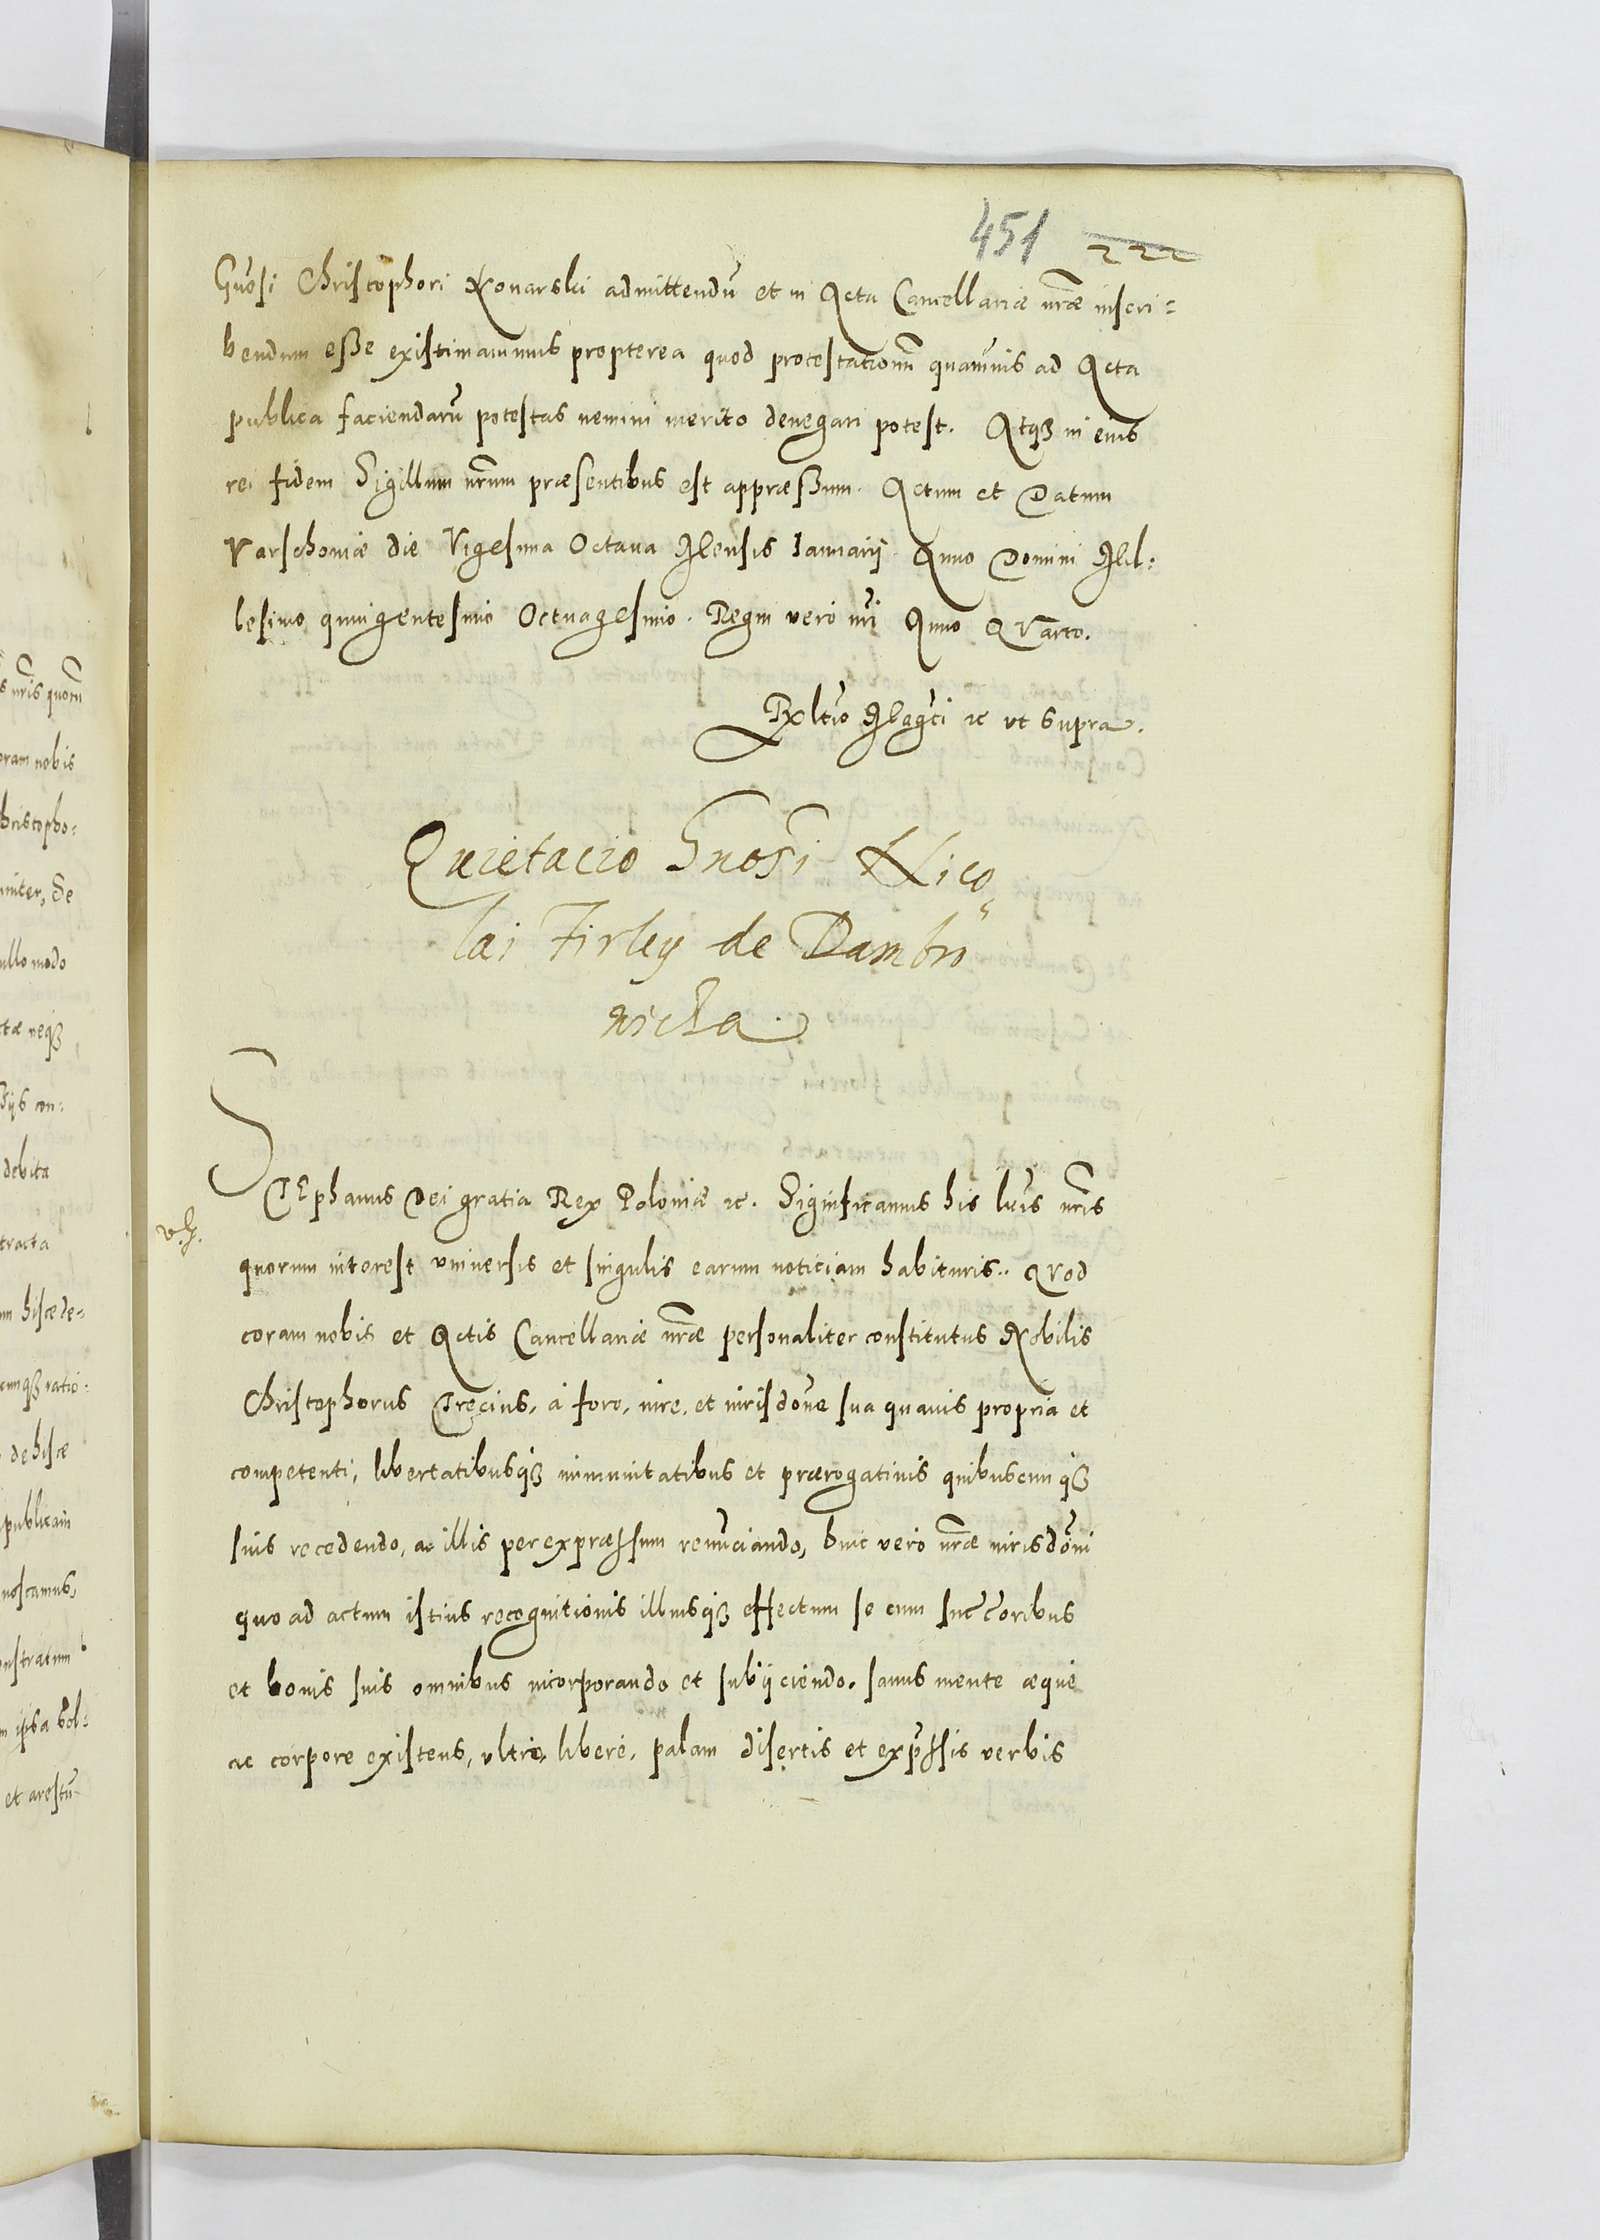 451 222
Gnosi Christophori Konarski admittendū et in Acta Cancellariæ nr̄æ inscri=
bendum eße existimauimus propterea quod protestationū quaruis ad Acta
publica faciendarū potestas nemini merito denegari potest. Atqȝ in eius
rei fidem Sigillum nr̄um præsentibus est appræßum. Actum et Datum
Varschouiæ die Vigesima Octaua Mensis Ianuarij Anno Domini Mil=
lesimo quingentesimo Octuagesimo. Regni vero nr̄i Anno QVarto.
Rltio Magci ꝛc vt supra.
Quietacio Gnosi Nico
lai Firley de Dambro
wicka.
STEphanus Dei gratia Rex Poloniæ ꝛc. Significamus his lr̄is nr̄is
quorum interest vniuersis et singulis earum noticiam habituris.. QVod
coram nobis et Actis Cancellariæ nr̄æ personaliter constitutus Nobilis
Christophorus Trecius, à foro, iure, et iurisdōne sua quauis propria et
competenti, libertatibusqȝ immunitatibus et prærogatiuis quibuscunqȝ
suis recedendo, ac illis per expræssum renūciando, huic vero nr̄æ iurisdōni
quo ad actum istius recognitionis illiusqȝ effectum se cum succ̄oribus
et bonis suis omnibus incorporando et subijciendo. sanus mente æque
ac corpore existens, vltro, libere, palam disertis et exp̄ssis verbis
s nr̄is quorū
oram nobis
hristopho=
ullo modo
tæ neqȝ
debita
tracta
m hisce de=
de hisce
publicam
noscamus,
et arestū